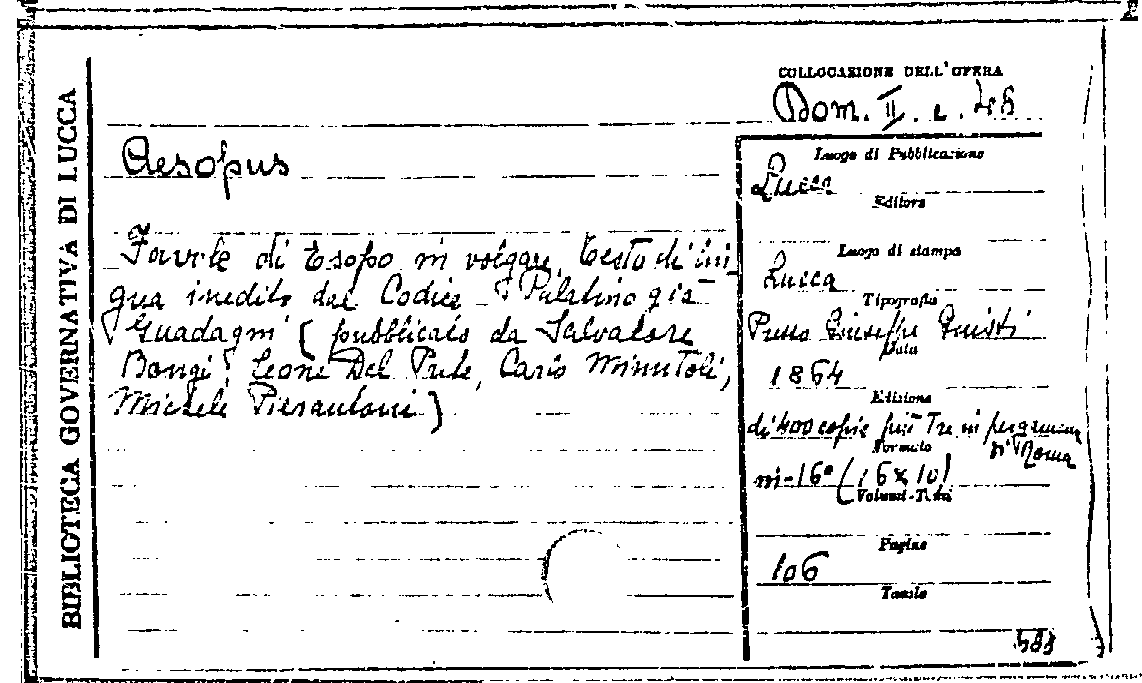 BIBLIOTECA GOVERNATIVA DI LUCCA
COLLOCAZIONE DELL'OPERA
Dom. II.
Aesopus
Favole di Esopo in volgare, testo di lin
gua inedito dal Codice Palatino già
Guadagni (pubblicato da Salvatore
Bongi, Leone Del Prete, Carlo Minutoli,
Michele Pierantoni)
Luogo di Pubblicazione
Lucca
Editore
Luogo di stampa
Lucca
Tipografia
Presso Giuseppe Giusti
Data
1864
Edizione
di 400 copie più Tre in pergamena
di Roma
Formato
in-16° (16x10)
Volumi-T
Pagine
106
Tavole